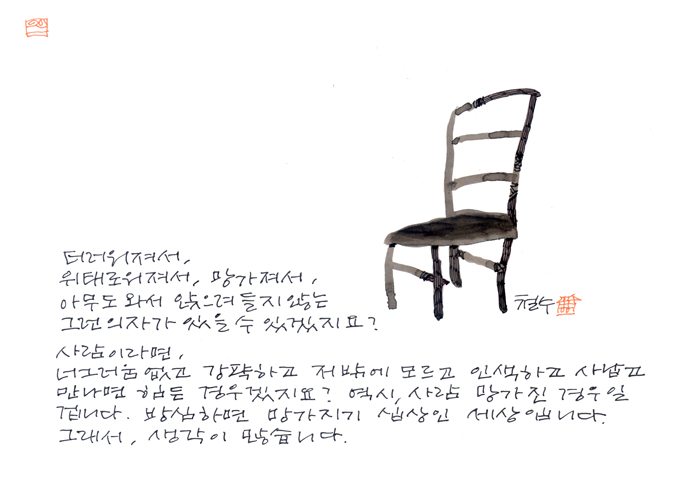 더러워져서,
위태로워져서, 망가져서,
아무도 와서 앉으려 들지 않는
그런 의자가 있을 수 있겠지요?
철수
사람이라면,
너그러움 없고 강퍅하고 저밖에 모르고 인색하고 사납고
만나면 힘든 경우겠지요? 역시, 사람 망가진 경우일
겁니다. 방심하면 망가지기 십상인 세상입니다.
그래서, 생각이 많습니다.